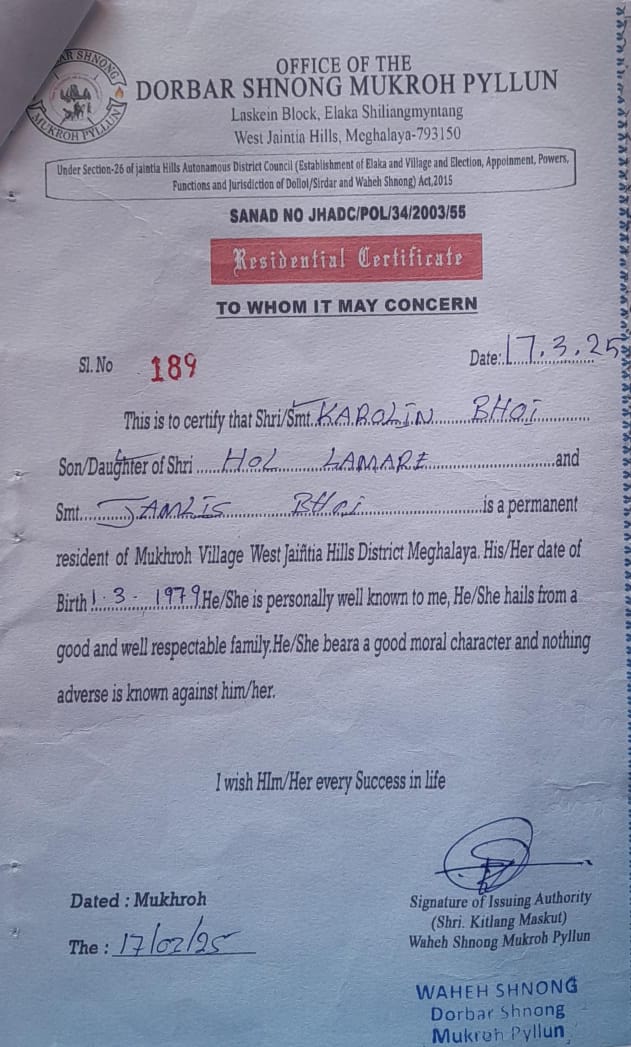 AR SHNONG
MUKROH PYLLUN
OFFICE OF THE
DORBAR SHNONG MUKROH PYLLUN
Laskein Block, Elaka Shiliangmyntang
West Jaintia Hills, Meghalaya-793150
Under Section-26 of jaintia Hills Autonamous District Council (Establishment of Elaka and Village and Election, Appoinment, Powers,
Functions and Jurisdiction of Dollol/Sirdar and Waheh Shnong) Act,2015
SANAD NO JHADC/POL/34/2003/55
Residential Certificate
TO WHOM IT MAY CONCERN
Sl. No 189 Date:.17.3.25
This is to certify that Shri/Smt. KAROLIN BHOI
Son/Daughter of Shri ..... HOL LAMARE ..... and
Smt..... JAMLIS BHOI ..... is a permanent
resident of Mukhroh Village West Jaintia Hills District Meghalaya. His/Her date of
Birth 1.3-1979 He/She is personally well known to me, He/She hails from a
good and well respectable family.He/She beara a good moral character and nothing
adverse is known against him/her.
I wish HIm/Her every Success in life
Signature of Issuing Authority
(Shri. Kitlang Maskut)
Waheh Shnong Mukroh Pyllun
Dated : Mukhroh
The : 17/02/25
WAHEH SHNONG
Dorbar Shnong
Mukroh Pyllun